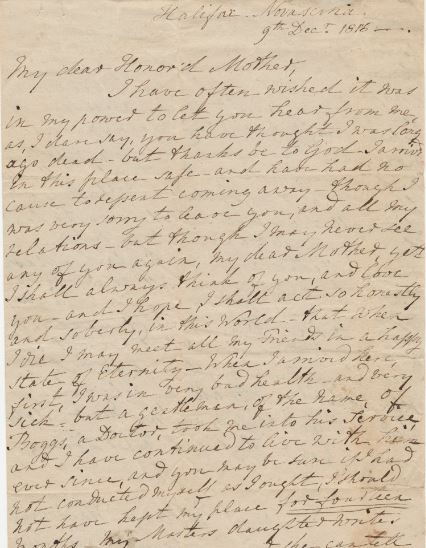 Halifax Novascotia.
9th Decr. 1818
My dear Honor'd Mother,
I have often wished it was
in my power to let you hear from me,
as, I dare say, you have thought I was long
ago dead - but thanks be to God I arriv'd
in this place safe - and have had no
cause to repent coming away - though I
was very sorry to leave you, and all my
relations - but though I may never see
any of you again, my dear Mother, yet
I shall always think of you, and love
you - and I hope, I shall act so honestly
and soberly, in this World - that when
I die I may meet all my Friends in a happy
state of Eternity - When I arrived here,
first, I was in very bad health - and very
sick - but a gentleman, of the name of
Boggs, a Doctor, took me into his Service
and I have continued to live with him
ever since, and you may be sure if I had
not conducted myself as I ought, I should
not have kept my place for fourteen
months - My Masters daughter writes
she can tell